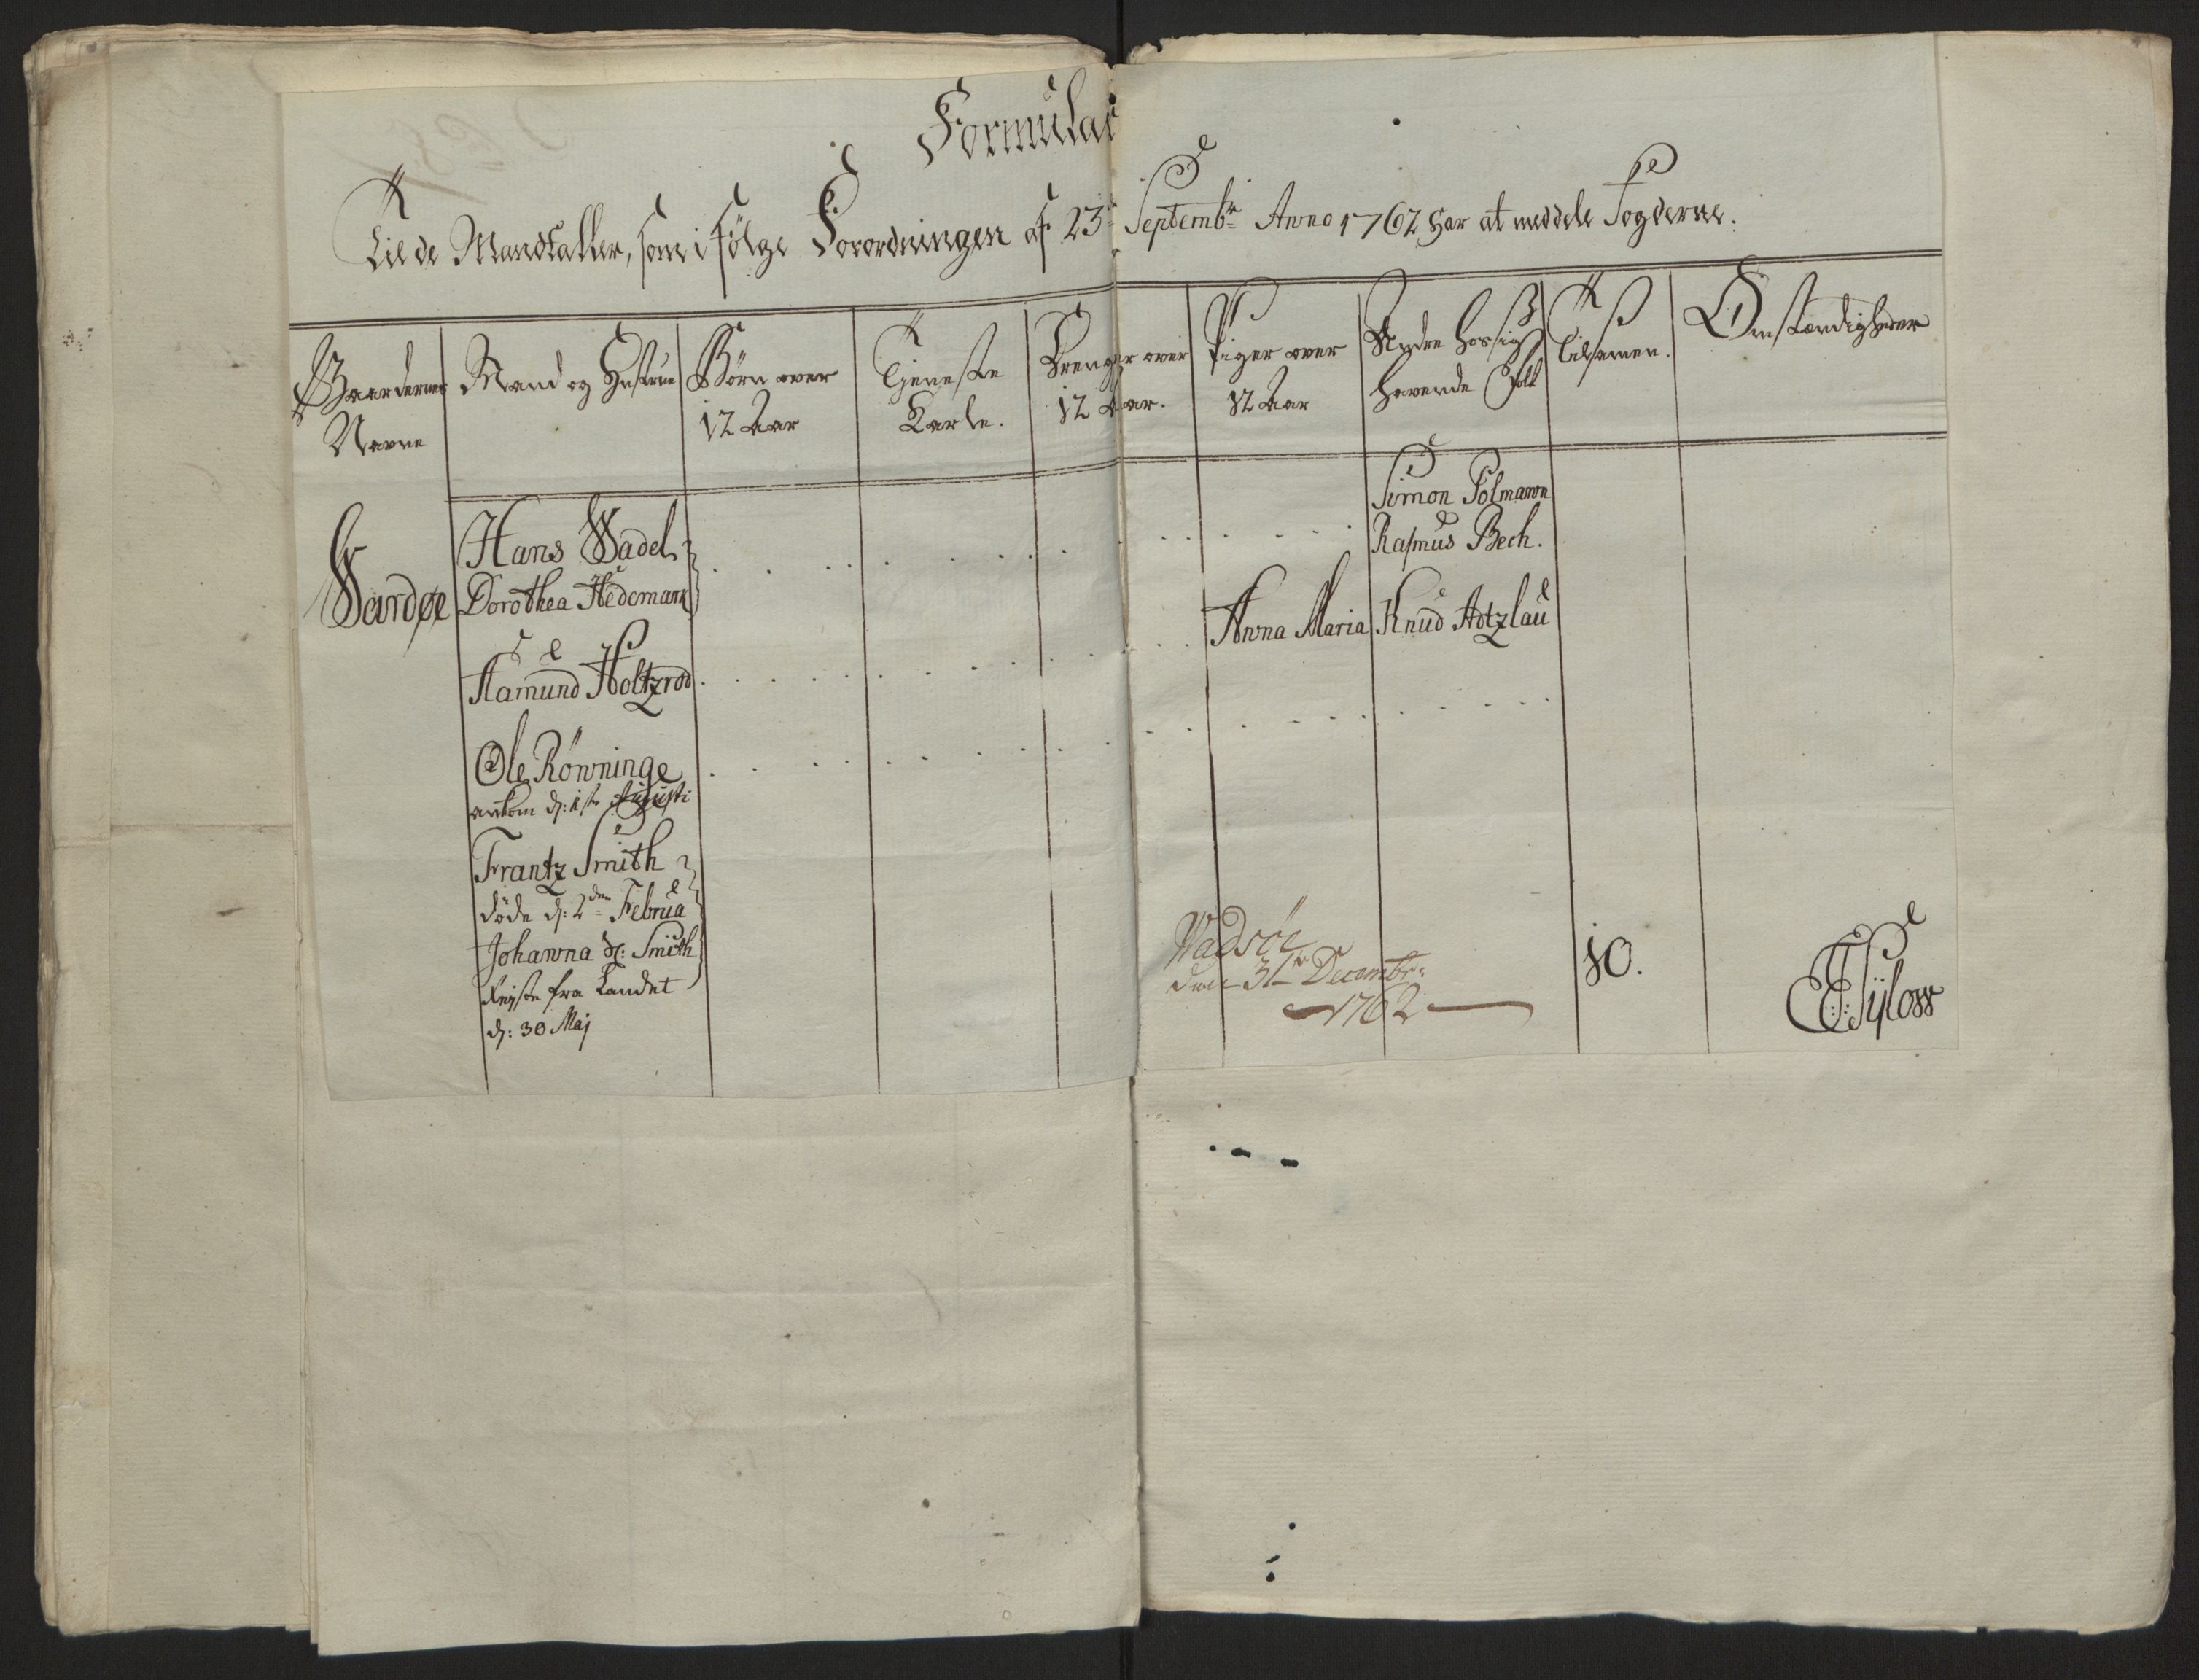 Formular
Til de Mandtaller, som i følge Forordningen af 23de Septembr Anno 1762 har at meddele Fogderne.
Gaardernes Navne
Mand og Hustrue
Börn over 12 Aar
Tjeneste Karle.
Drenger over 12 Aar.
Piger over 12 Aar
Andre hos sig havende Folk
Tilsamen.
Omstændigheder
Wardøe
Hans Wadel
Dorothea Hedemann
Simon Polmann
Rasmus Bech.
Aamund Holtzrod
Anna Maria
Knud Adtzlau
Ole Rönninge
ankom d: 1ste Augusti
Frantz Smith
döde d: 2den Februa
Johanna Sl: Smith
Reiste fra Landet
d: 30 Maj
Wadsöe
den 31te Decembr:
1762
10.
Sÿlow